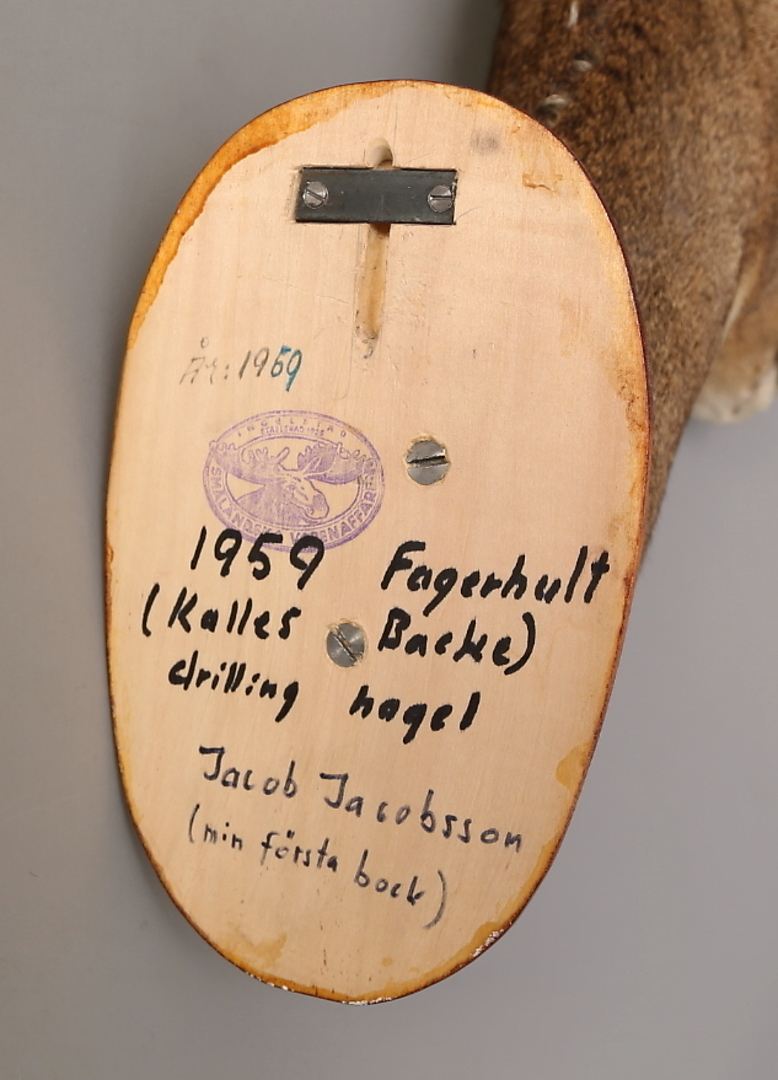 År: 1959
INGELSTAD
ETABLERAD
SMÅLANDSKA VAPENAFFÄREN
1959 Fagerhult
(Kalles Backe)
drilling hagel
Jacob Jacobsson
(min första bock)